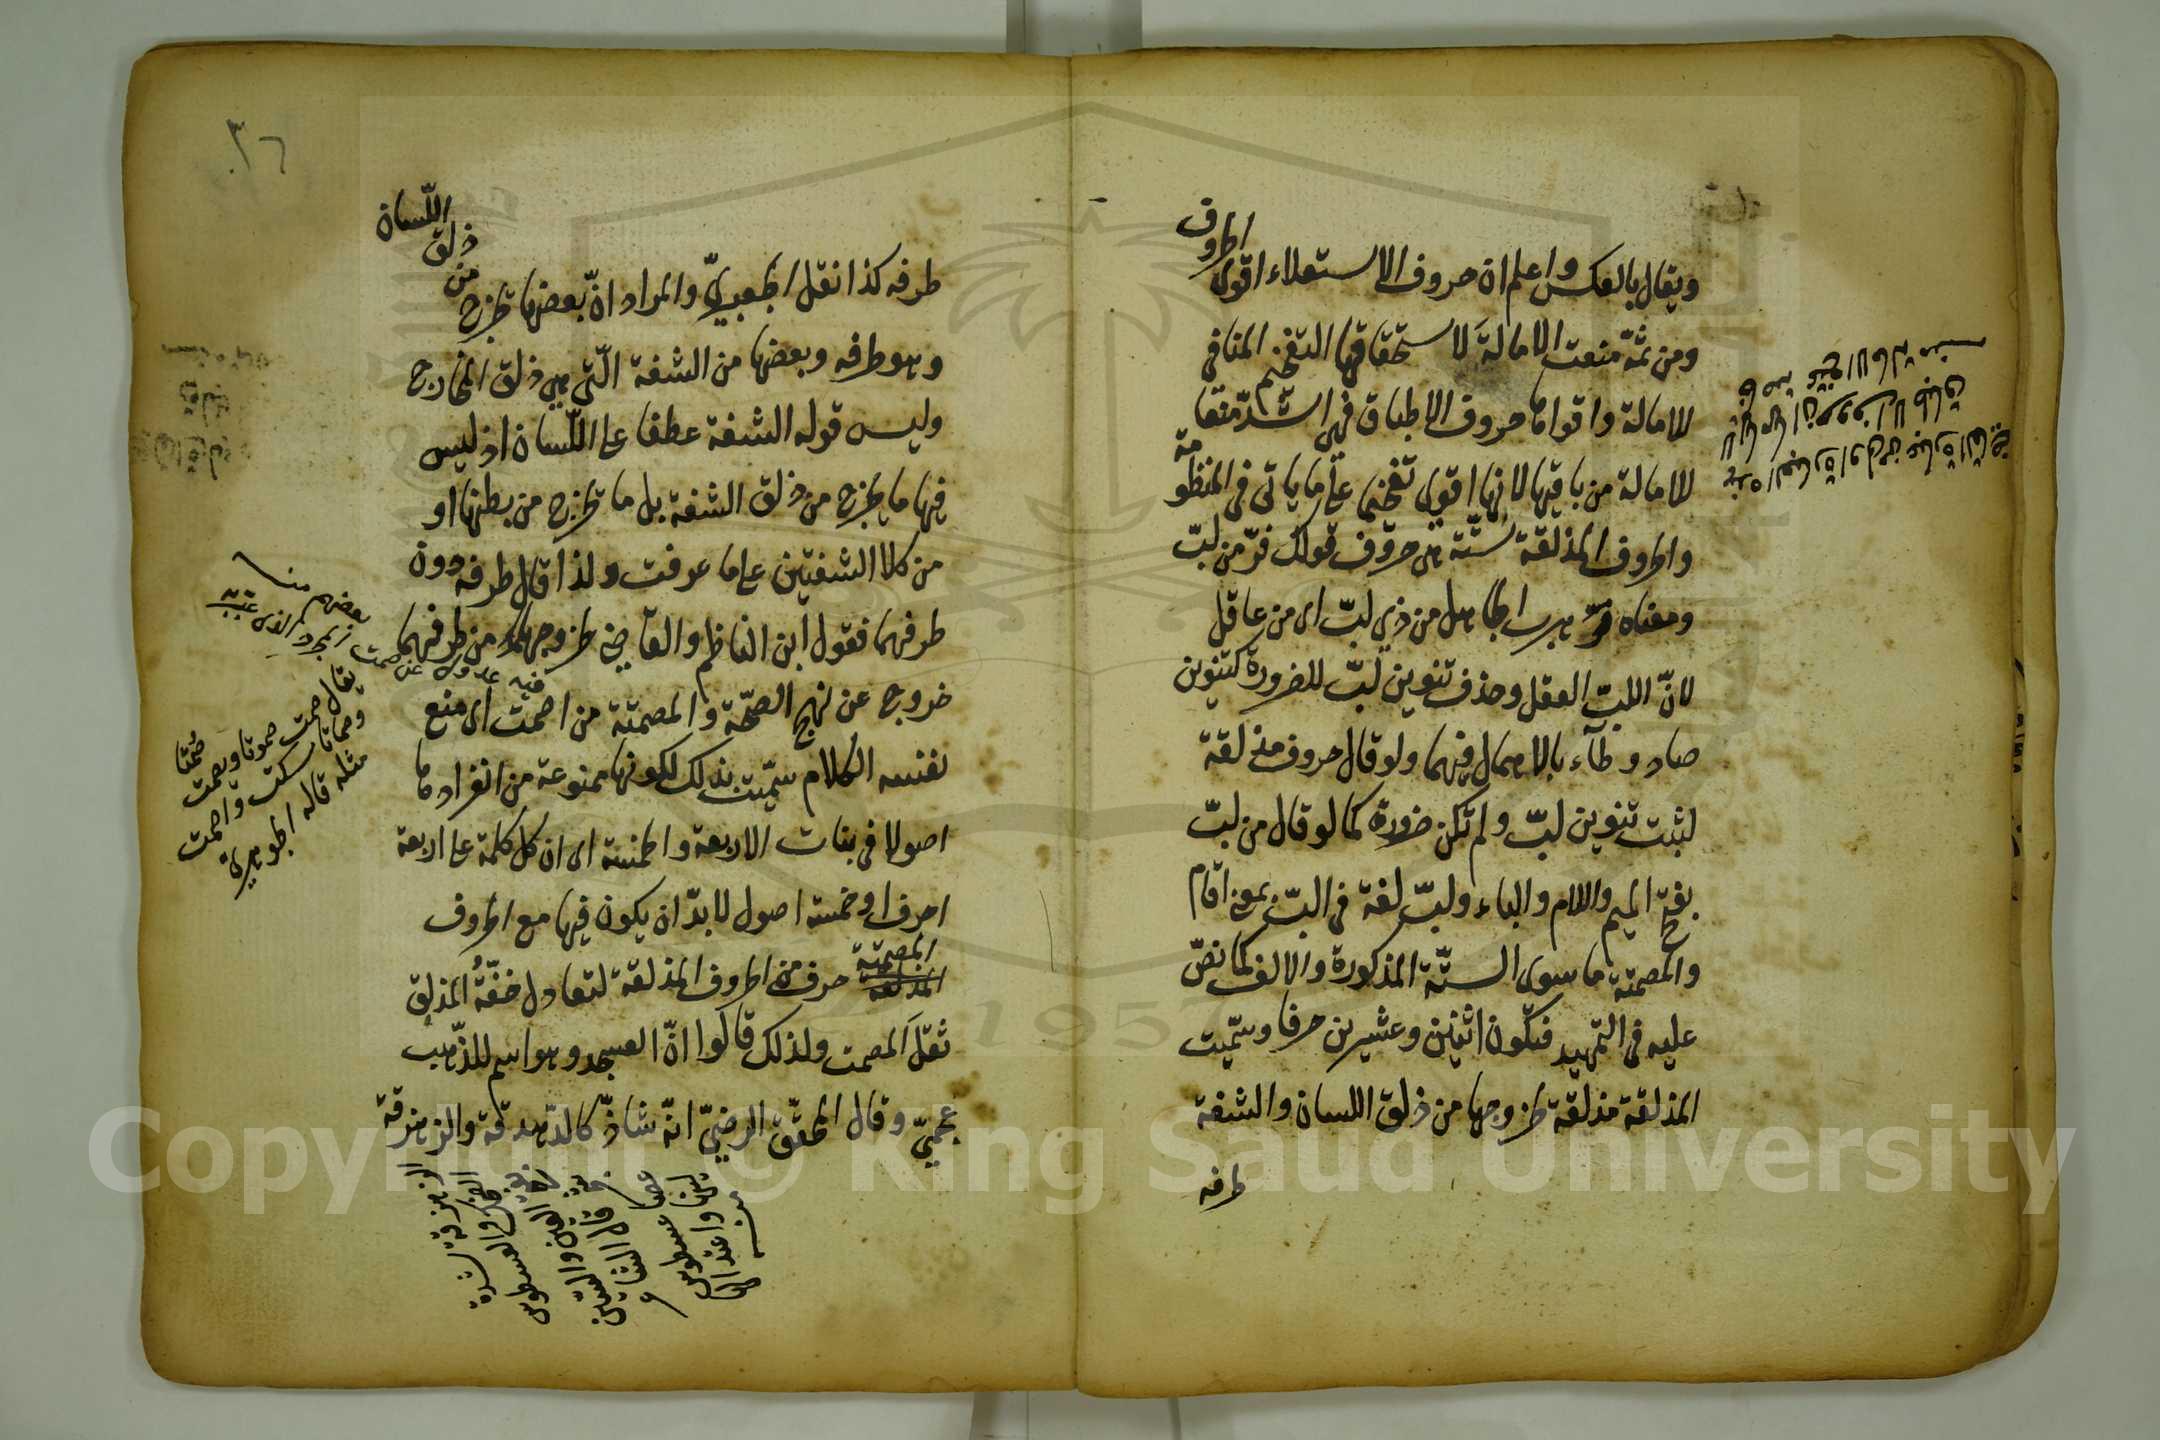 ويقال بالعكس واعلم ان حروف الاستعلاء اقوى الحروف
ومن ثمة منعت الامالة لاستحقاقها التفخيم المنافي
للامالة واقواها حروف الاطباق فهي اشد منعا
للامالة من باقيها لانها اقوى تفخيما على ما ياتى فى المنظومة
والحروف المذلقة ستة هى حروف قولك فر من لب
ومعناه فر هرب الجاهل من ذي لب اى من عاقل
لان اللب العقل وحذف تنوين لب للضرورة كتنوين
صاد وطآء بالاهمال فيهما ولو قال حروف مذلقة
لثبت تنوين لب ولم تكن ضرورة كما لو قال من لب
بفتح الميم واللام والباء ولب لغة فى الب بمعنى اقام
والمصمتة ما سوى الستة المذكورة والالف كما نص
عليه فى التمهيد فتكون اثنين وعشرين حرفا وسميت
المذلقة مذلقة لخروجها من ذلق اللسان والشفة
طرفه
طرفه كذا نقل الجعبري والمراد ان بعضها تخرج من ذلق اللسان
وهو طرفه وبعضها من الشفة التي هي ذلق المخارج
وليس قوله الشفة عطفا على اللسان اذ ليس
فيها ما يخرج من ذلق الشفة بل ما تخرج من بطنها او
من كلا الشفتين على ما عرفت ولذا قال طرفه دون
طرفهما فقول ابن الناظم والقاضي لخروجها من طرفهما
خروج عن نهج الصحة والمصمتة من اصمت اى منع
نفسه الكلام سميت بذلك لكونها ممنوعة من انفرادها
اصولا فى بنات الاربعة والخمسة اى ان كل كلمة على اربعة
احرف او خمسة اصول لا بد ان يكون فيها مع الحروف
المصمتة
المذلقة حرف من الحروف المذلقة لتعادل خفةُ المذلق
ثقلَ المصمت ولذلك قالوا ان العسجد وهو اسم للذهب
عجمي وقال المحقق الرضي انه شاذ كالدهدقة والزهزقة
يقال صمت صموتا وصمت صُمتا
وصماتا سكت واصمت
مثله قاله الجوهري
الزهزقة شدة
الضحك والعسطوس